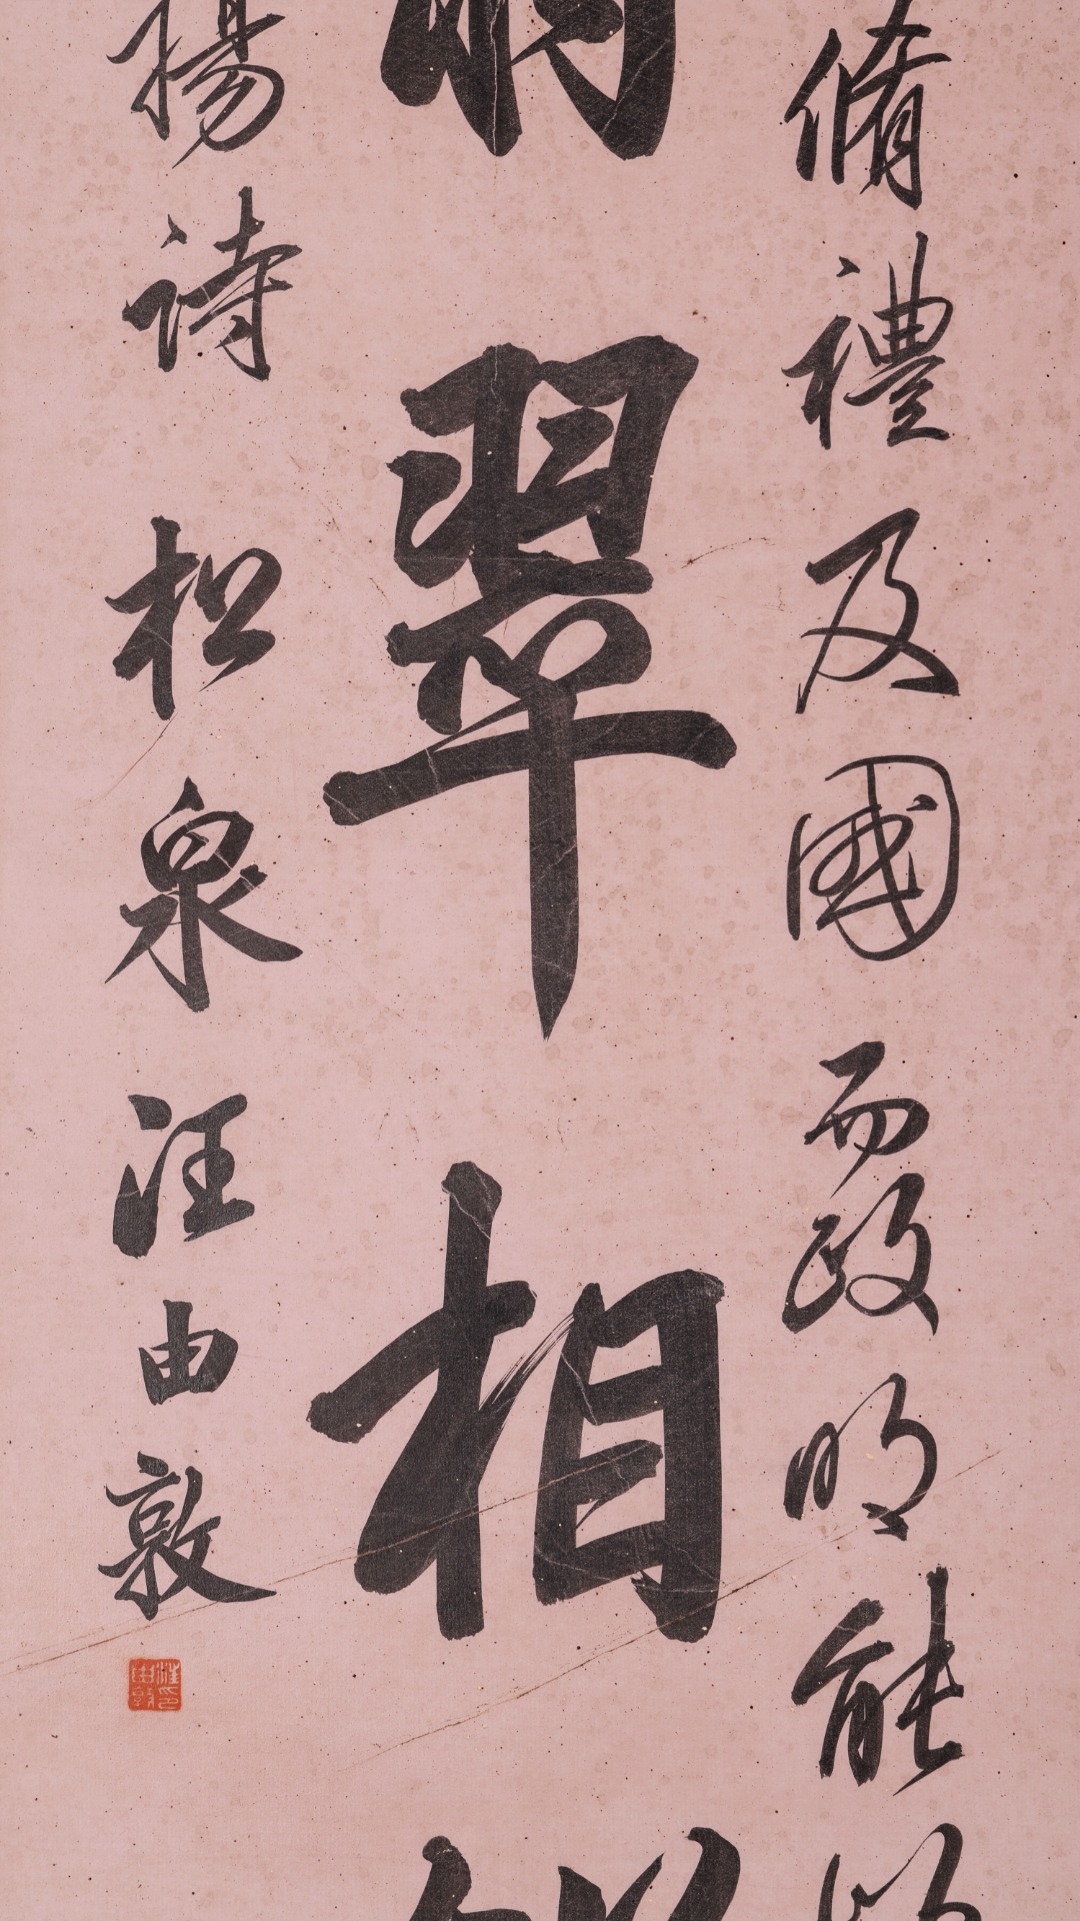 脩禮及國而政明能
翠相
揚詩 松泉汪由敦
汪印由敦